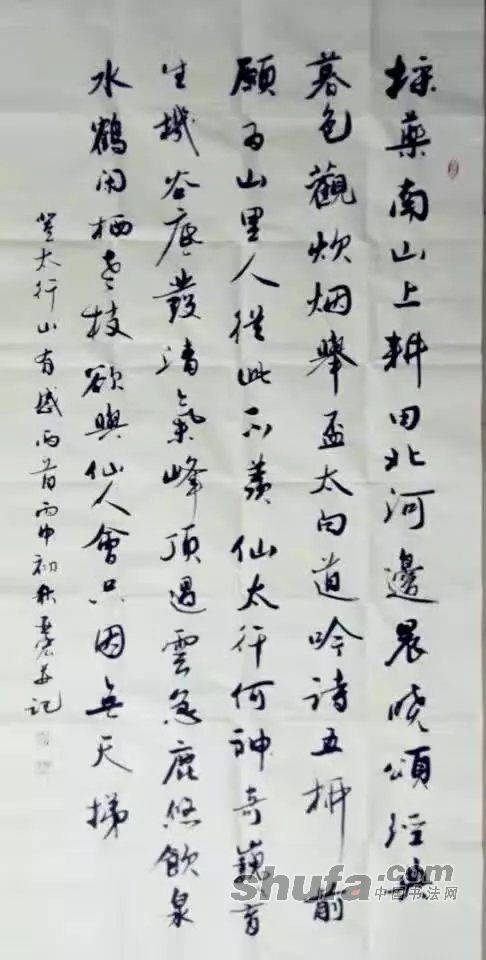 採藥南山上耕田北河邊晨曉頌經典
暮色觀炊烟舉盃太白道吟詩五柳前
願為山里人從此不羨仙太行何神奇巍育
生機谷底發清氣峰頂遇雲急鹿悠飲泉
水鶴閑栖老枝欲與仙人會只因無天梯
登太行山有感兩首丙申初秋并記
shufa.com
中国书法网